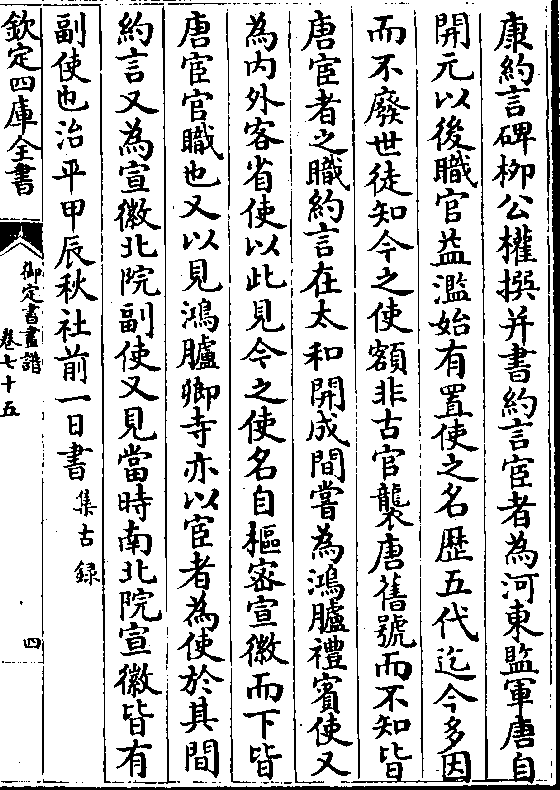 康約言碑栁公權撰并書約言宦者為河東監軍唐自
開元以後職官益濫始有置使之名歴五代迄今多因
而不廢世徒知今之使額非古官襲唐舊號而不知皆
唐宦者之職約言在太和開成間嘗為鴻臚禮賓使又
為内外客省使以此見今之使名自樞宻宣徽而下皆
唐宦官職也又以見鴻臚卿寺亦以宦者為使於其間
約言又為宣徽北院副使又見當時南北院宣徽皆有
副使也治平甲辰秋社前一日書集古録
欽定四庫全書
御定書畫譜
卷七十五
四